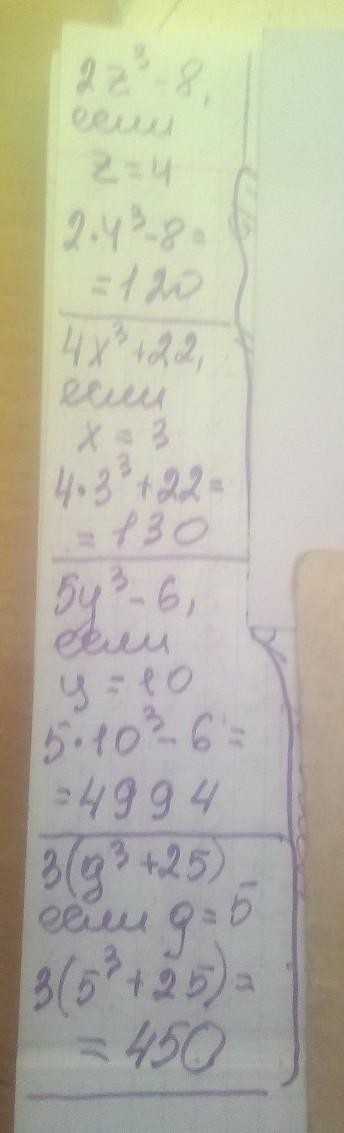 2z³-8,
если
z=4
2·4³-8=
=120
4x³+22,
если
x=3
4·3³+22=
=130
5y³-6,
если
y=10
5·10³-6=
=4994
3(g³+25)
если g=5
3(5³+25)=
=450